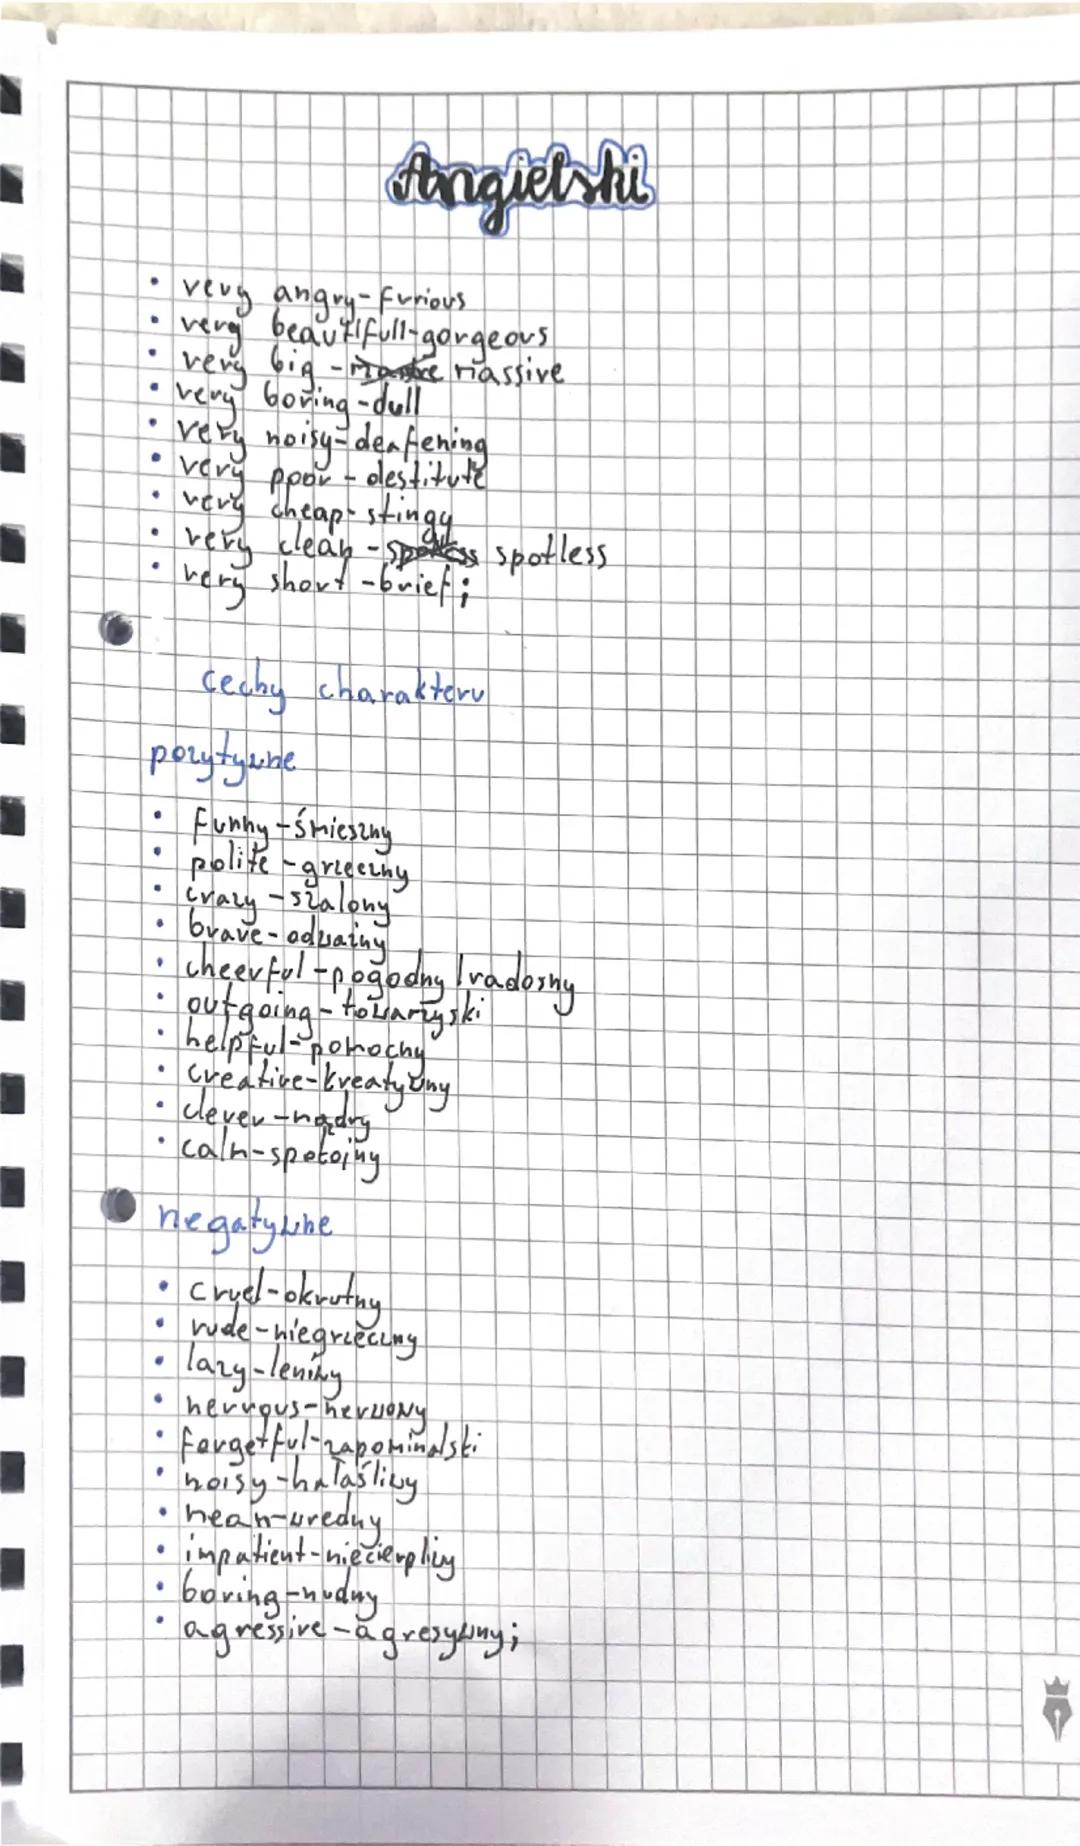 Angielski
• very angry - furious
• very beautifull - gorgeous
• very big - massive
• very boring - dull
• very noisy - deafening
• very poor - destitute
• very cheap - stingy
• very clean - spotless
• very short - brief;
cechy charakteru
pozytywne
• funny - śmieszny
• polite - grzeczny
• crazy - szalony
• brave - odważny
• cheerful - pogodny / radosny
• outgoing - towarzyski
• helpful - pomocny
• creative - kreatywny
• clever - mądry
• calm - spokojny
negatywne
• cruel - okrutny
• rude - niegrzeczny
• lazy - leniwy
• nervous - nerwowy
• forgetful - zapominalski
• noisy - hałaśliwy
• mean - wredny
• impatient - niecierpliwy
• boring - nudny
• agressive - agresywny;